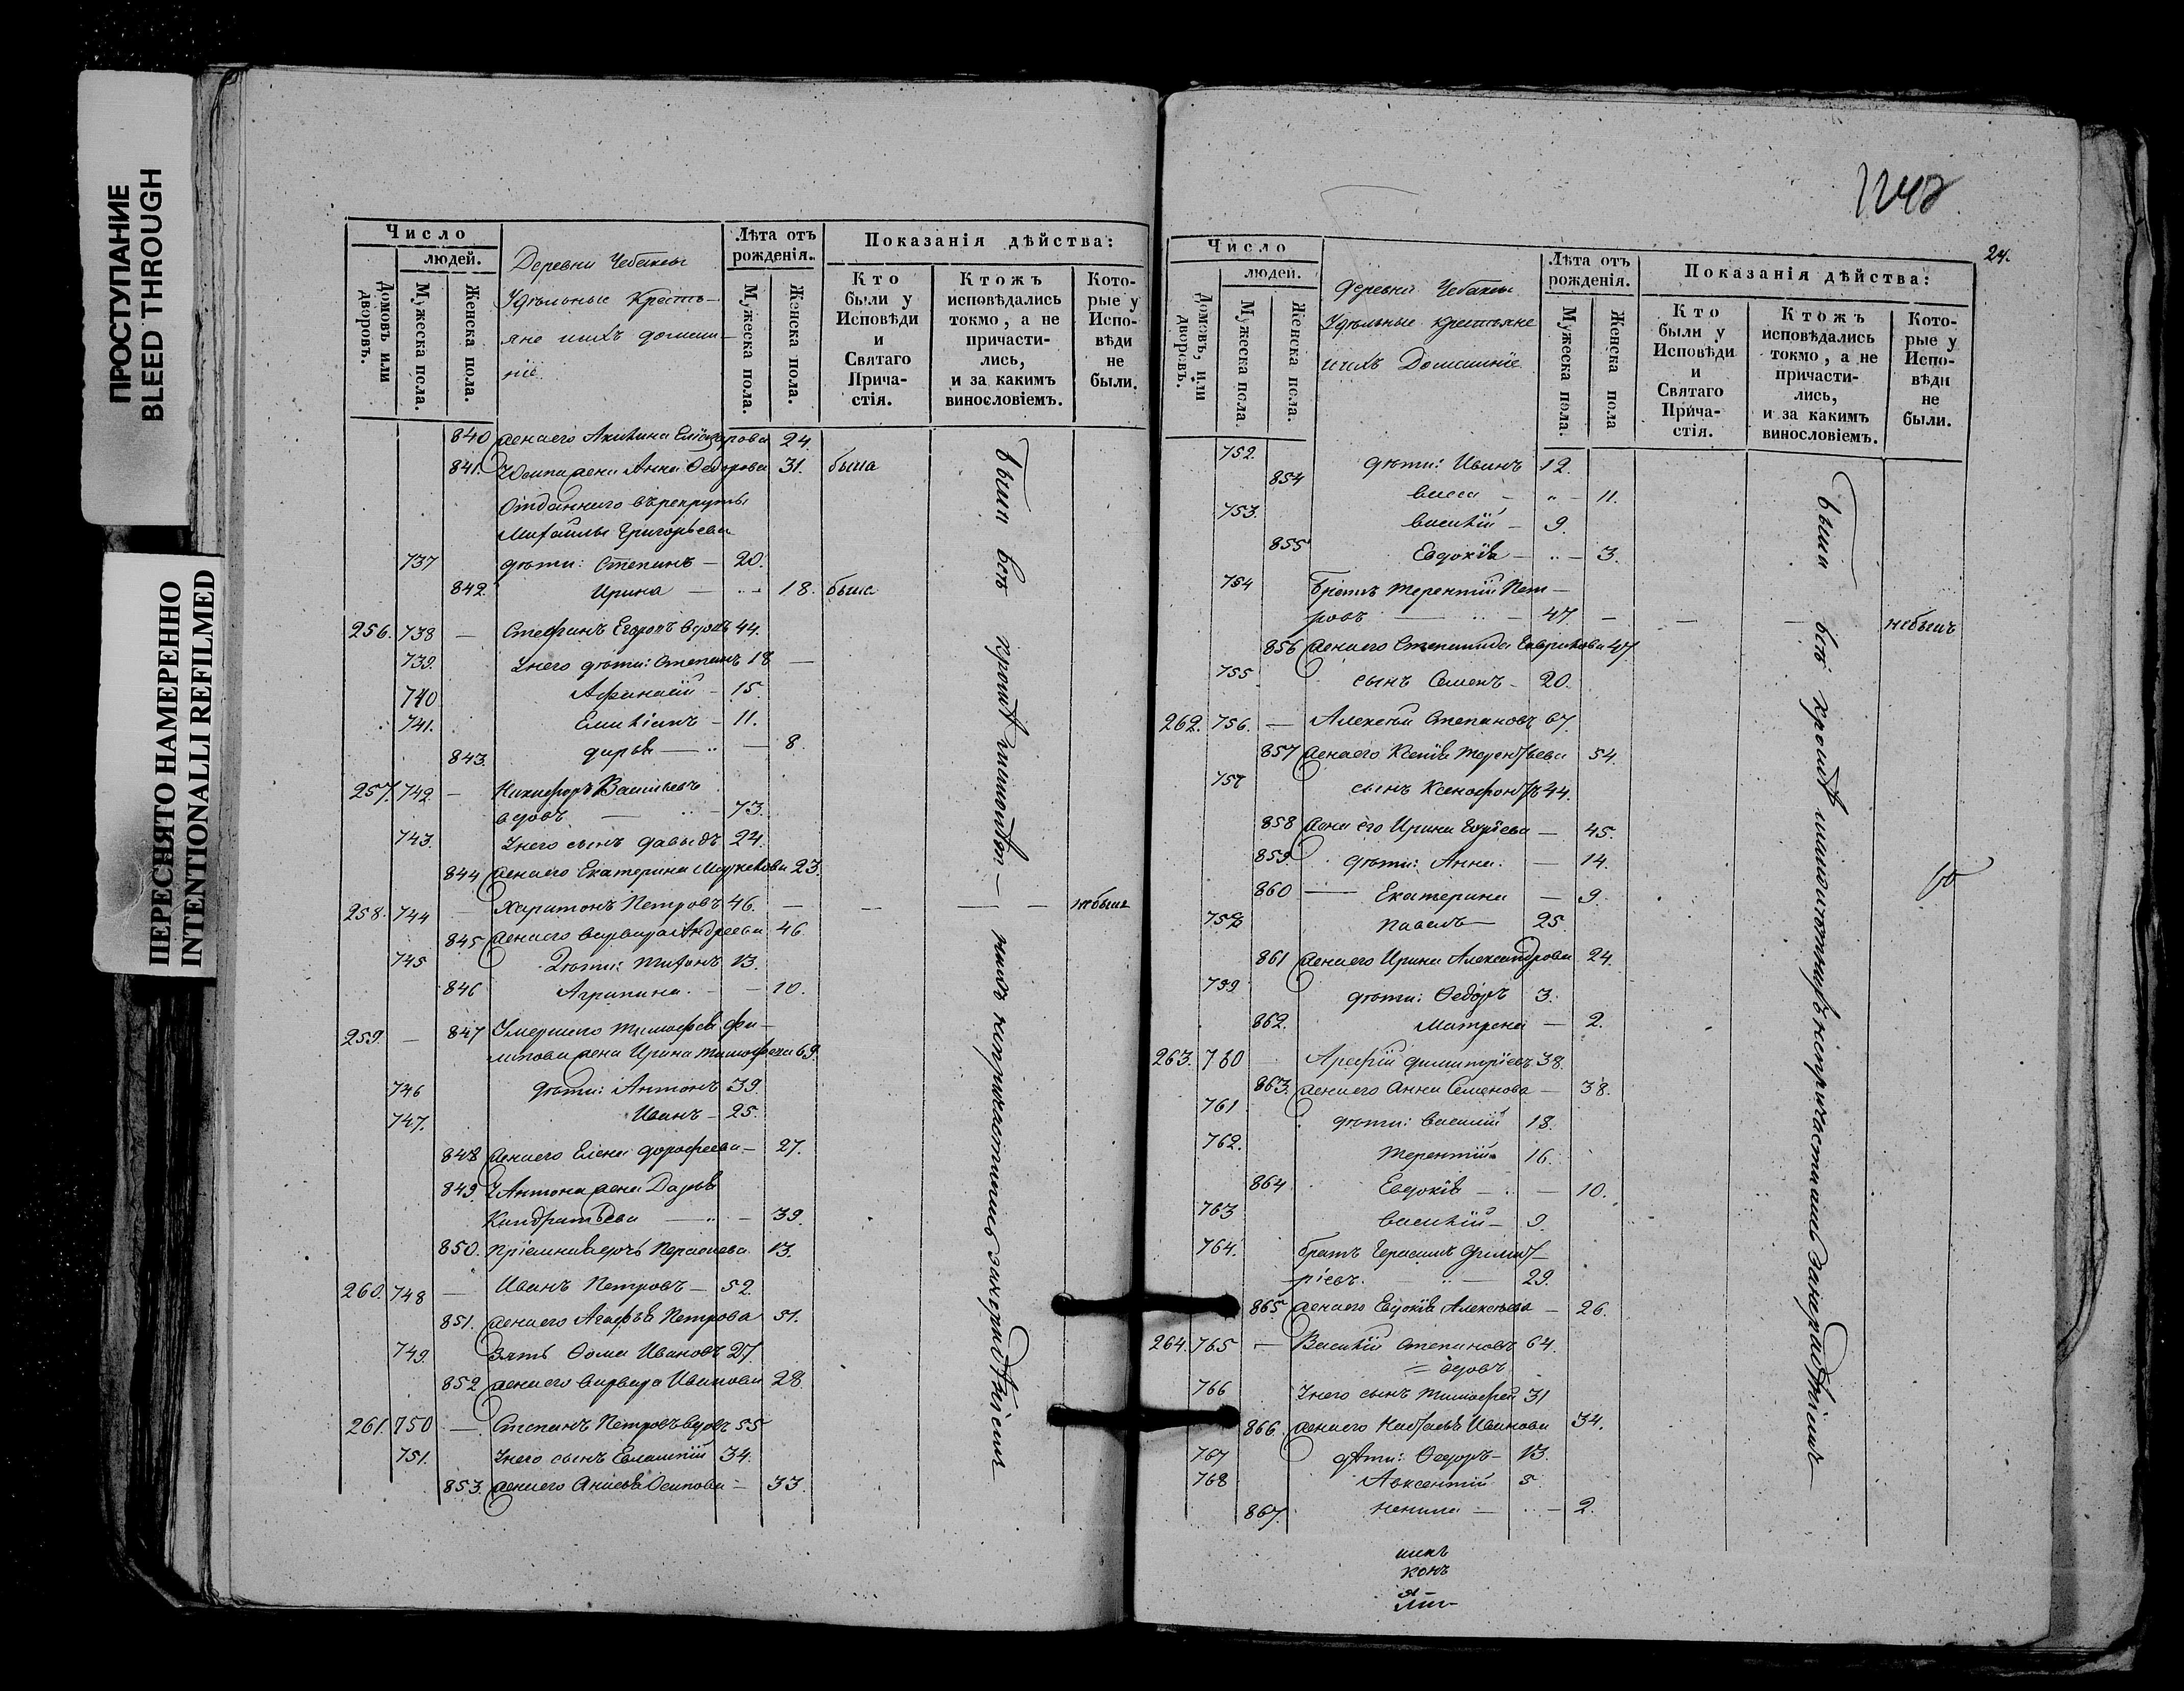 ПРОСТУПАНИЕ
BLEED THROUGH
ПЕРЕСНЯТО НАМЕРЕННО
INTENTIONALLI REFILMED
Число
людей.
Домовъ или дворовъ.
Мужеска пола.
Женска пола.
Деревни Чебаксы
Удѣльные Крестъ-
яне ихъ домаш-
ніе
Лѣта отъ рожденія.
Мужеска пола.
Женска пола.
Показанія дѣйства:
Кто были у Исповѣди и Святаго Прича-стія.
Ктожъ исповѣдались токмо, а не причасти-лись, и за какимъ винословіемъ.
Кото-рые у Испо-вѣди не были.
840 жена его Акилина Еліазарова 24.
841. Жена Анна Ѳедорова 31. была
Отданнаго въ рекруты
Михаилы Григорьева
737 дѣти: Степанъ — 20.
842. Ирина — 18. была
256. 738 — Стефанъ Егоровъ вдовъ 44.
739. У него дѣти: Степанъ 18 —
740 Афанасій — 15.
741. Емиліанъ — 11.
843. Дарья — 8.
257. 742 — Никифоръ Васильевъ
вдовъ — 73.
743. У него сынъ Давыдъ 24.
844 жена его Екатерина 23.
258. 744 — Харитонъ Петровъ 46. — — — — не былъ
845 жена его Варвара Андреева 46.
745 Дѣти: Тихонъ 13.
846 Агрипина. — 10.
259. — 847 Умершаго Тимофея Фи-
липова жена Ирина Тимофеева 69.
746 дѣти: Антонъ 39.
747. Иванъ — 25.
848 жена его Елена Дорофеева — 27.
849. У Антона жена Дарья
Кондратьева — 39.
850. Пріемная дочь 13.
260. 748 — Иванъ Петровъ — 52.
851. жена его Агафья Петрова 51.
749. Зять Ѳома Ивановъ 27.
852 жена его Варвара Иванова 28.
261. 750 — Степанъ Петровъ вдовъ 55
751. У него сынъ Евлампій 34.
853. жена его Анисья Осипова — 33.
Были всѣ кромѣ — не причастились
24.
Число
людей.
Домовъ, или дворовъ.
Мужеска пола
Женска пола.
Деревни Чебаксы
Удѣльные крестьяне
и ихъ Домашніе
Лѣта отъ рожденія.
Мужеска пола.
Женска пола
Показанія дѣйства:
Кто были у Исповѣди и Святаго Прича-стія.
Ктожъ исповѣдались токмо, а не причасти-лись, и за какимъ винословіемъ.
Кото-рые у Испо-вѣди не были.
752. дѣти: Иванъ 12.
854 Васса — „ — 11.
753. Василій — 9.
855 Евдокія — „ — 3.
754 братъ Терентій Пет-
ровъ — 47. — — — не былъ
856 жена его Степанида 47.
755 сынъ Семенъ — 20.
262. 756. — Алексѣй Степановъ 67.
857 жена его Ксенія Терентьева 54.
757 сынъ Ксенофонтъ 44.
858 жена его Ирина — 45.
859. дѣти: Анна. — 14.
860 — Екатерина — 9.
758 Павелъ — 25.
861 жена его Ирина Александрова 24.
759 дѣти: Ѳедоръ 3.
862. Матрена — 2.
263. 760 — Арефій Димитріевъ 38.
863. жена его Анна Семенова — 38.
761 дѣти: Василій 18.
762. Терентій 16.
864 Евдокія — 10.
763 Василій — 9.
764. братъ Герасимъ Димит-
ріевъ. — 29.
865 жена его Евдокія Алексѣева — 26.
264. 765 — Василій Степановъ 64.
= вдовъ
766 У него сынъ Тимофей 31
866. жена его Наталья Иванова 34.
767 дѣти: Ѳедоръ — 13.
768 Авксентій 5.
867. Ненила — 2.
Были всѣ кромѣ не причастились